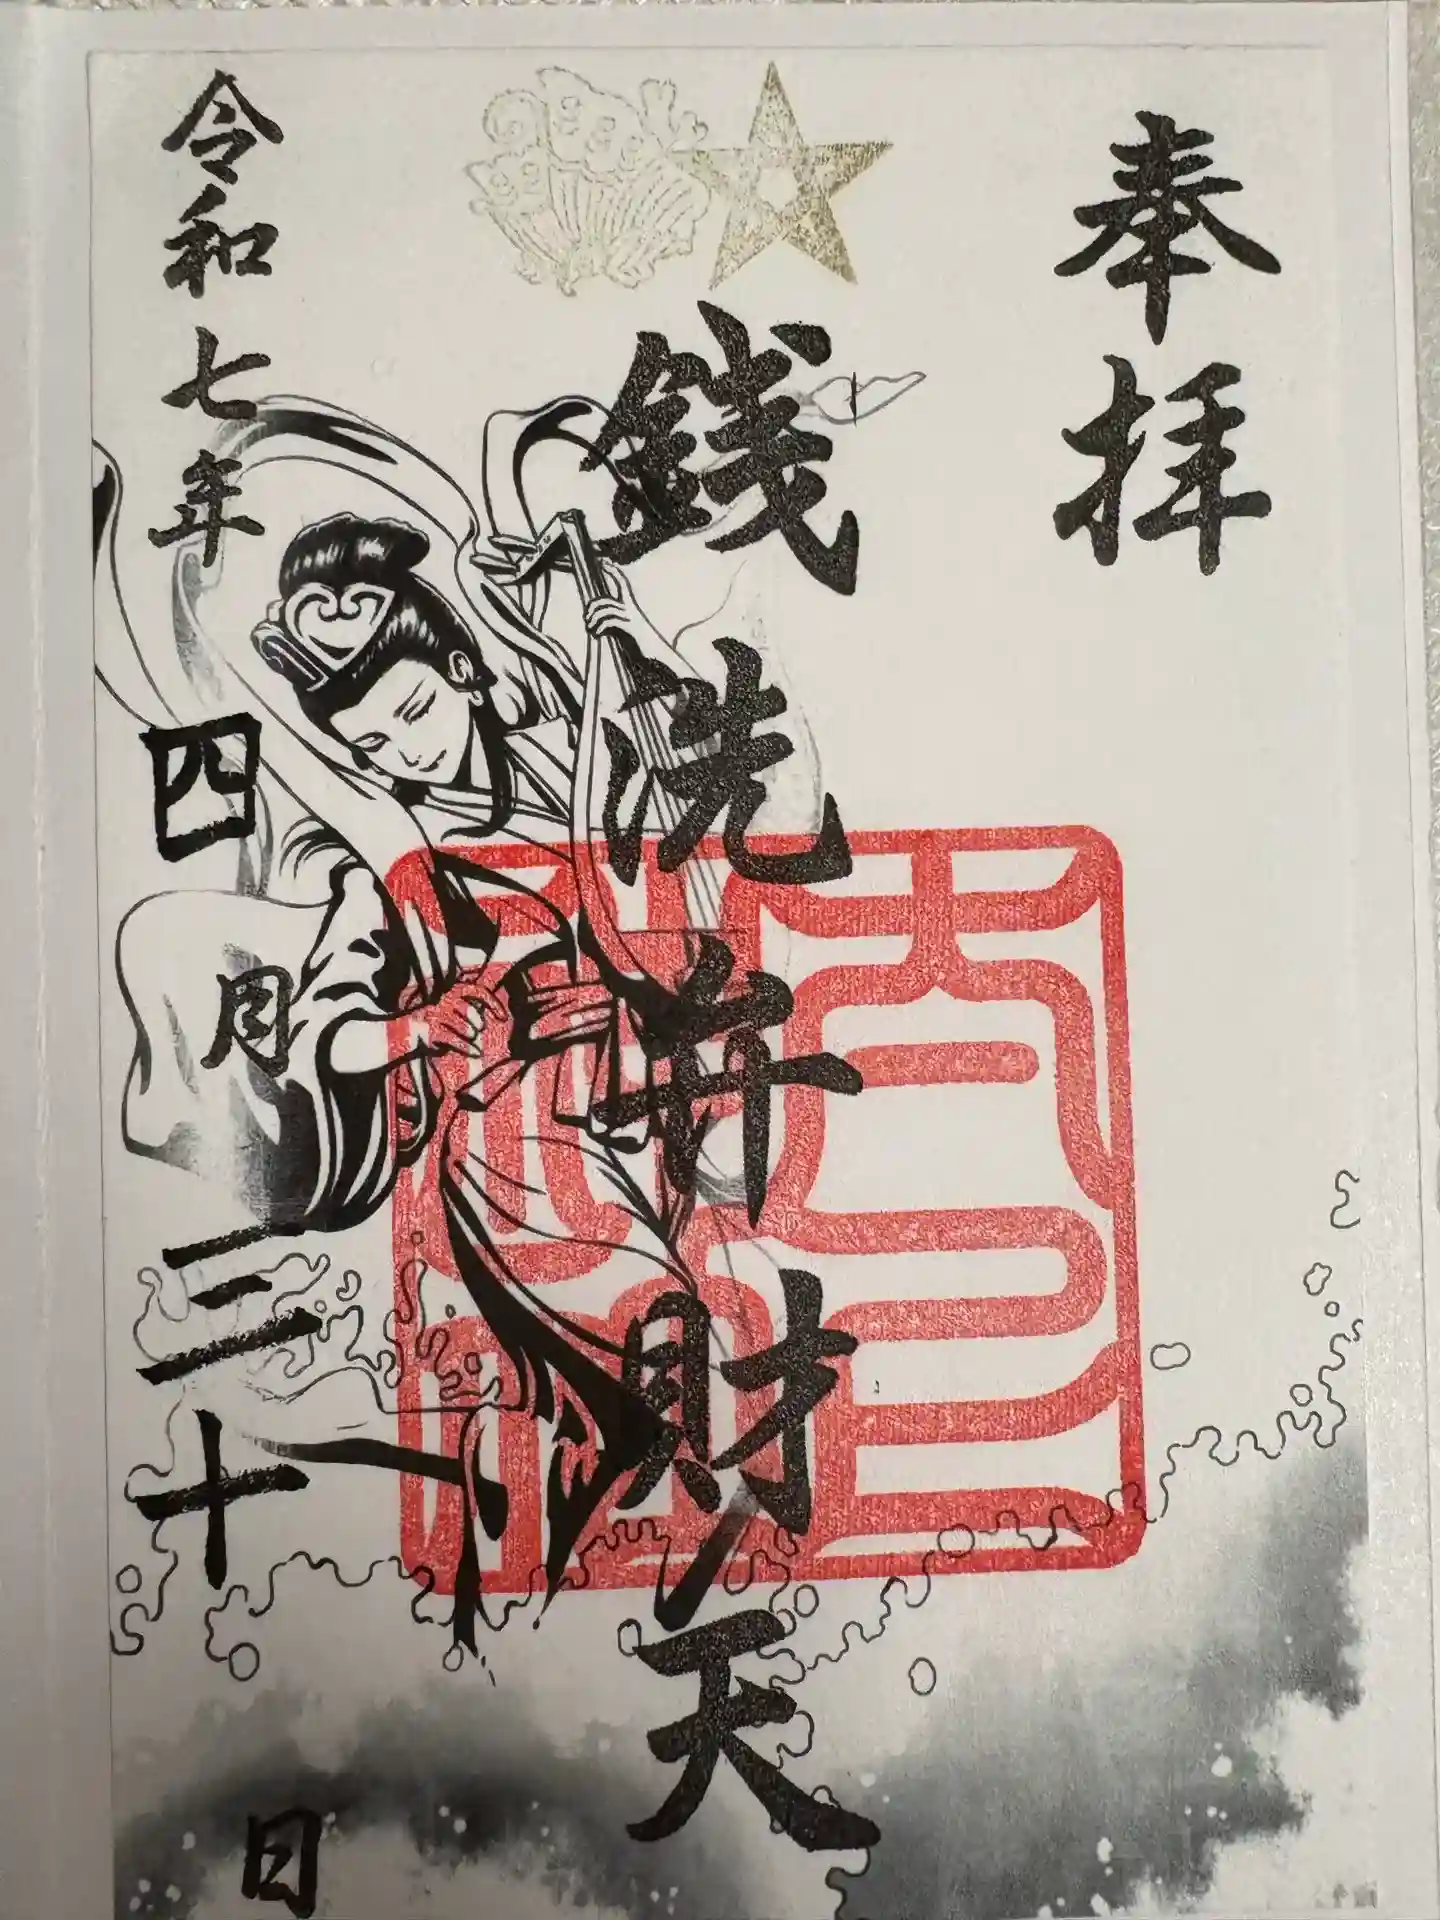 奉拝
銭洗弁財天
令和七年四月三十日